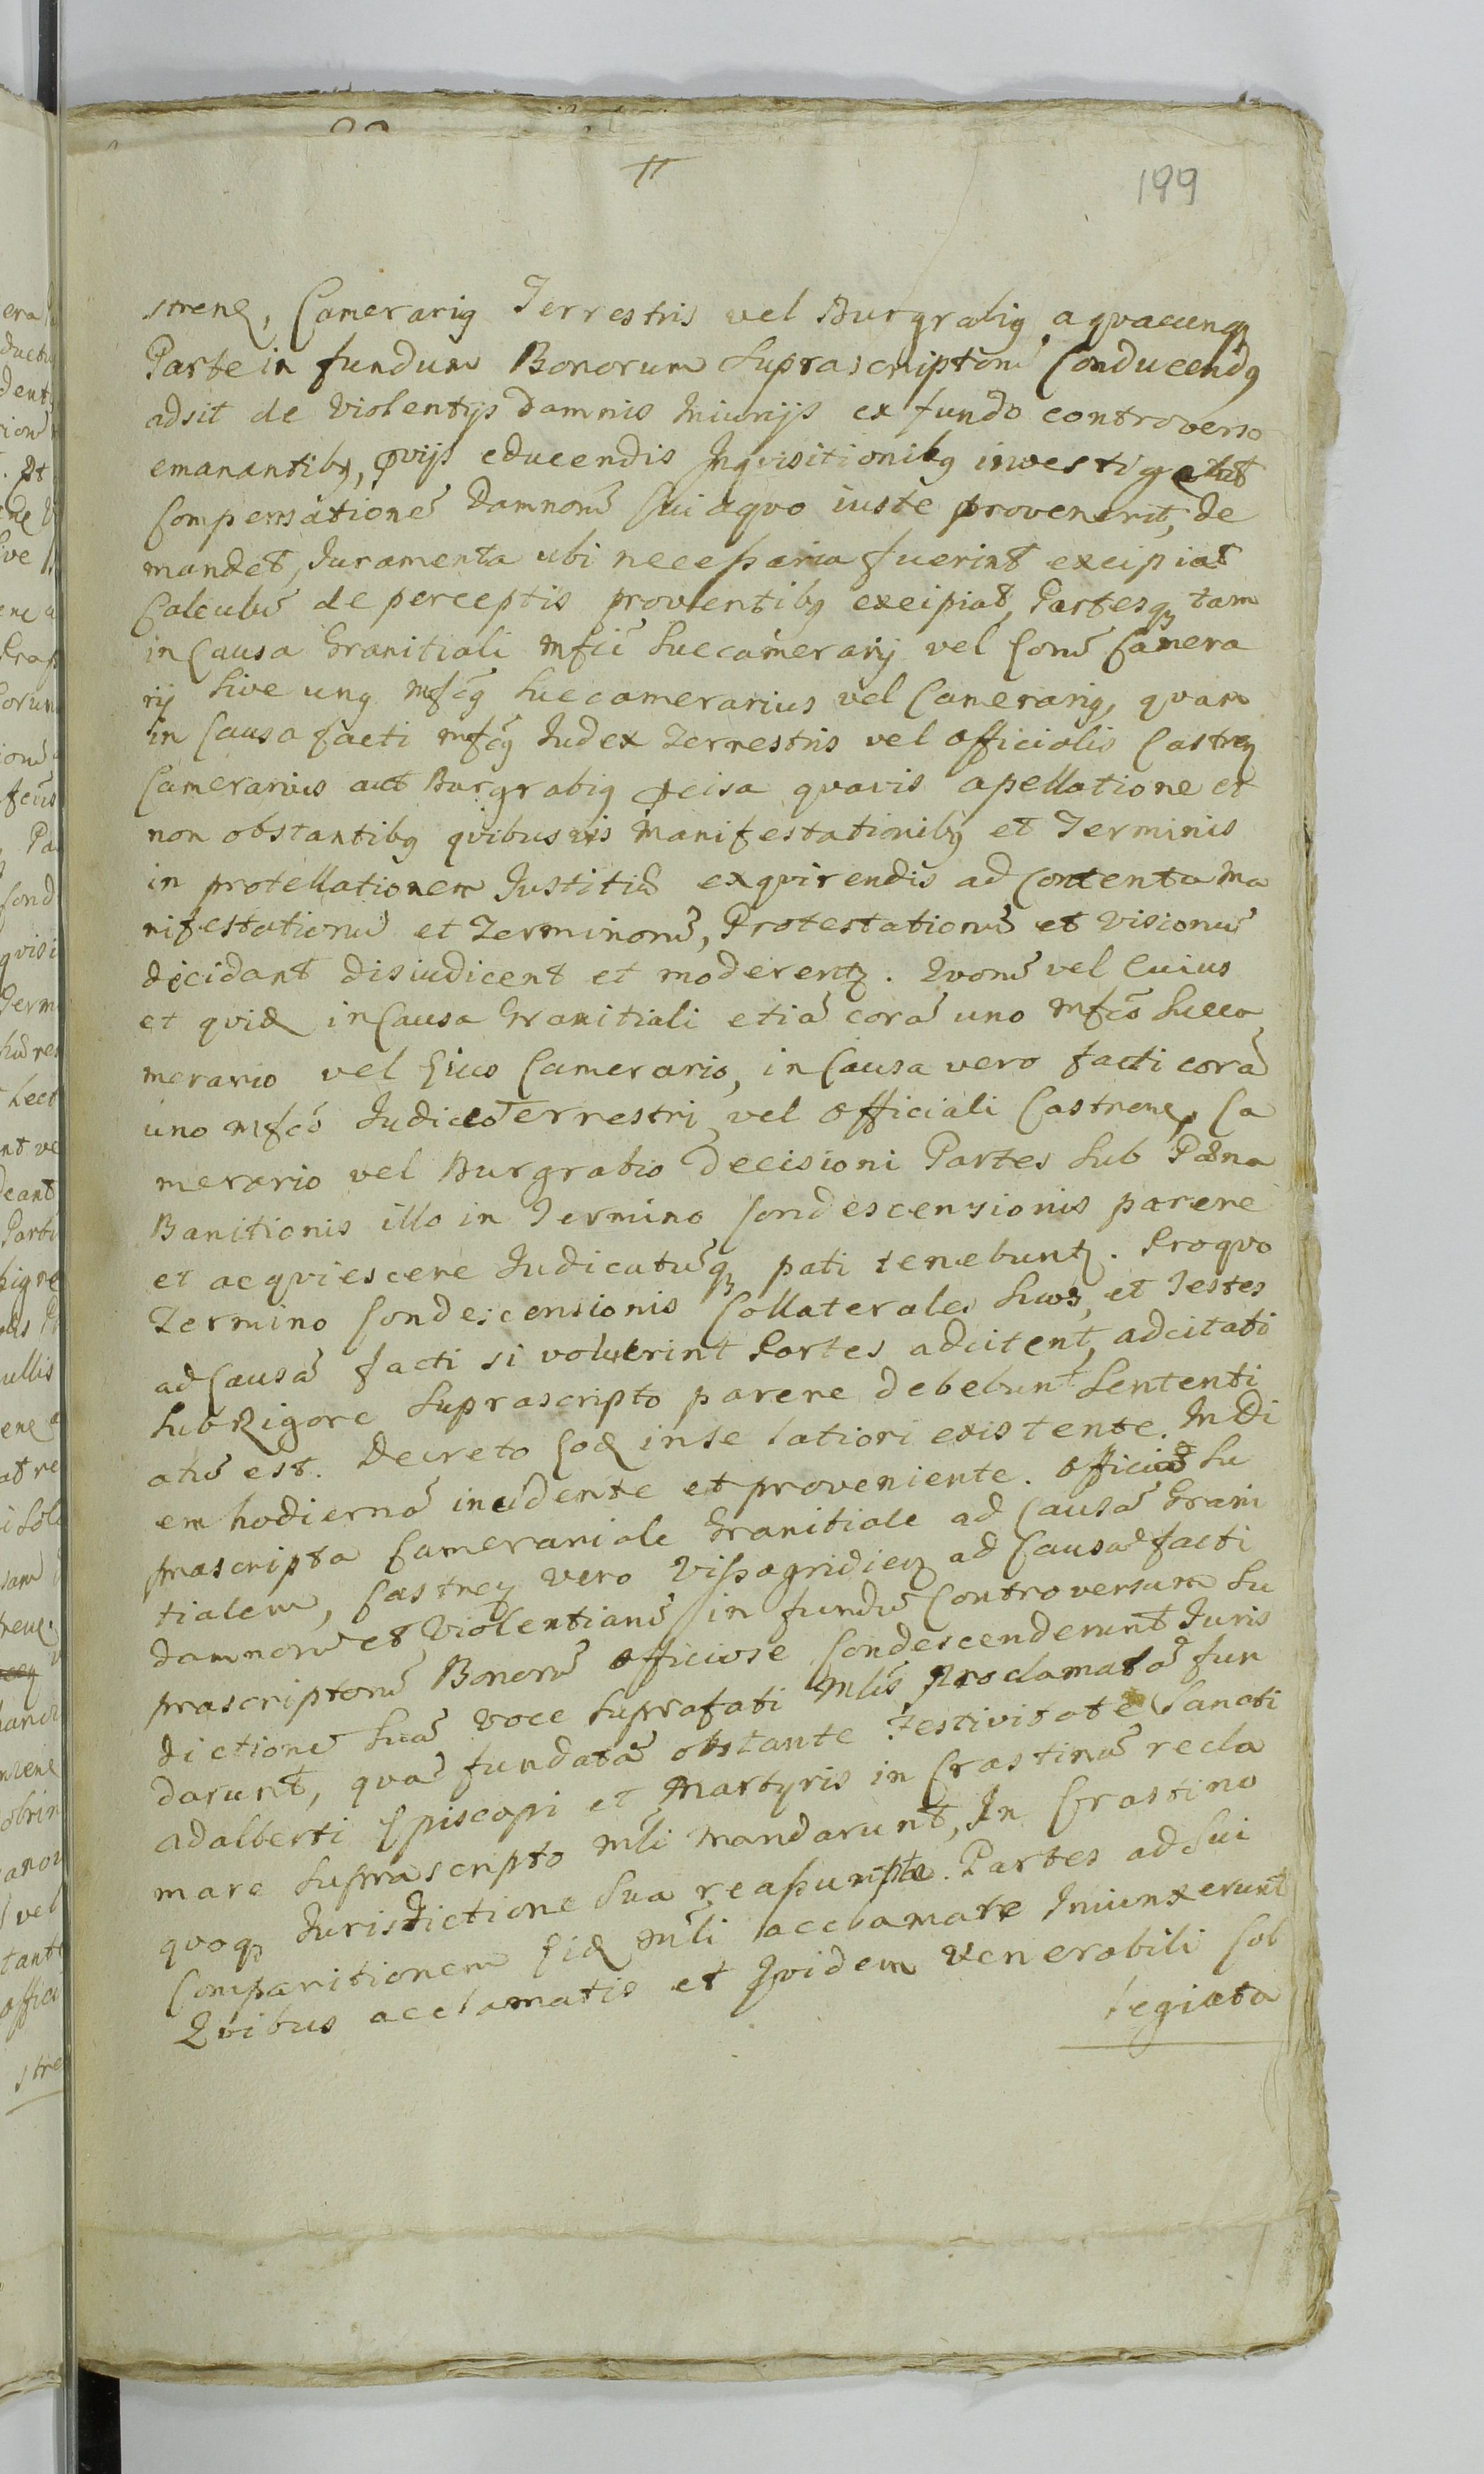 199
strenʒ, Camerariꝯ Terrestris vel Burgrabiꝯ aqvacunqꝫ
Parte in fundum Bonorum Suprascriptorũ Conducendꝯ
adsit de Violentijs Damnis Iniurijs ex fundo controverso
emanantibꝯ, pvijs educendis Inqvisitionibꝯ investiget
Compensationẽ Damnorũ Cui aqvo iuste provenerit, de
mandet, Juramenta ubi necessaria fuerint excipiat
Calculũ de perceptis proventibꝯ excipiat, Partesqꝫ tam
in Causa Granitiali Mfcĩ Succamerarij vel Eorũ Camera
rij Sive unꝯ Mfcꝯ Succamerarius vel Camerariꝯ, qvam
in Causa facti Mfcꝯ Judex Terrestris vel Officialis Castreñ
Camerarius aut Burgrabiꝯ pcisa qvavis apellatione et
non obstantibꝯ qvibusvis Manifestationibꝯ et Terminis
in protellationem Justitiæ exqvirendis ad Contenta Ma
nifestationũ et Terminorũ, Protestationũ et Visionũ
decidant disiudicent et moderentꝫ. Qvorũ vel Cuius
et qvidẽ in Causa Granitiali etiã corã uno Mfcõ Succa
merario vel Eius Camerario, in Causa vero facti corã
uno Mfcõ Judice Terrestri vel Officiali Castrenʒ, Ca
merario vel Burgrabio Decisioni Partes Sub Pæna
Banitionis illo in Termino Condescensionis parere
et acqviescere Judicatũqꝫ pati tenebuntꝫ. Pro qvo
Termino Condescensionis Collaterales Suos, et Testes
ad Causã facti si voluerint Partes adcitent, adcitati
Sub Rigore Suprascripto parere debebunt Sententi
atũ est. Decreto Eodẽ in Se latiori existente. In Di
em hodiernã incidente et proveniente. Officia Su
prascripta Camerariale Granitiale ad Causã Grani
tialem, Castreñ vero Vissogrodieñ ad Causã facti
damnorũ et Violentiarũ in fundũ Controversum Su
prascriptorũ Bonorũ Officiose Condescenderunt Juris
dictionẽ Suã voce Suprafati Mlis Proclamatã fun
darunt, qvã fundatã obstante Festivitate Sancti
Adalberti Episcopi et Martyris in Crastinũ recla
mare Suprascripto Mli mandarunt, In Crastino
qvoqꝫ Jurisdictione Sua reassumpta. Partes ad Sui
Comparitionem Eidẽ Mli acclamare Iniunxerunt
Qvibus acclamatis et Qvidem Venerabili Col
legiata